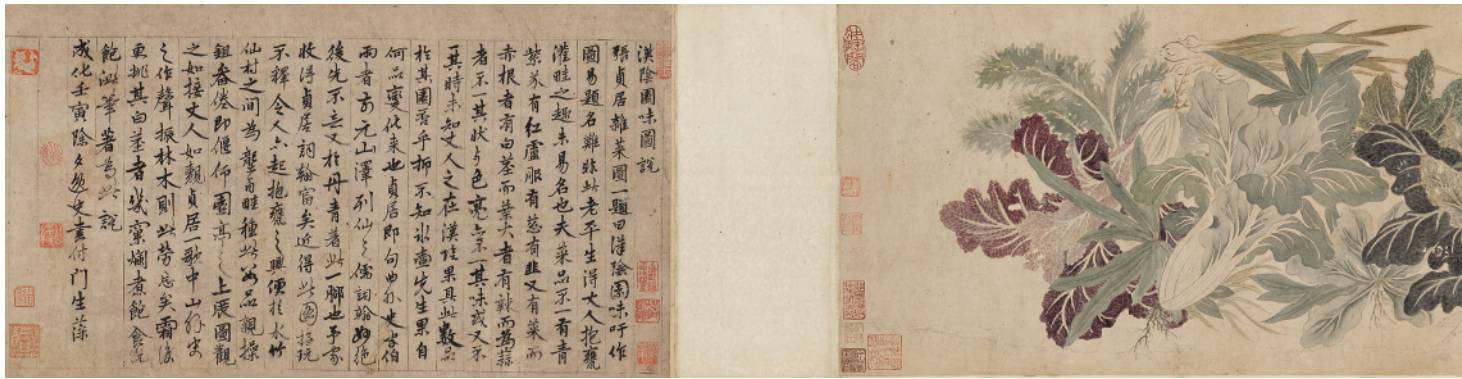 漢陰園味圖說
張貞居雜菜圖一題曰漢陰園味吁作
圖易題名難非此老平生得丈人抱甕
灌畦之趣未易名也夫菜品不一有青
紫芥有紅蘆菔有葱有韭又有菜而
赤根者有白莖而葉大者有辣而為蒜
者不一其狀与色亦不一其味或又不
一其時未知丈人之在漢陰果具此數品
於其園否乎抑不知冰壺先生果自
何品變化来也貞居即句曲外史字伯
雨者前元山澤列仙之儒詞翰妙絶
後先不意又於丹青著此一聊也予家
收得貞居詞翰富矣近得此圖玩
不釋令人亦起抱甕之興便於水竹
仙村之間為壟為畦種此品親操
鉏畚倦即偃仰園亭之上展圖觀
之如接丈人如親貞居一歌中山外史
之作聲振林木則此勞忘矣霜後
更挑其白莖者幾窠爛煮飽食既
飽泚筆著為此說
成化壬寅除夕逸史書付門生藻